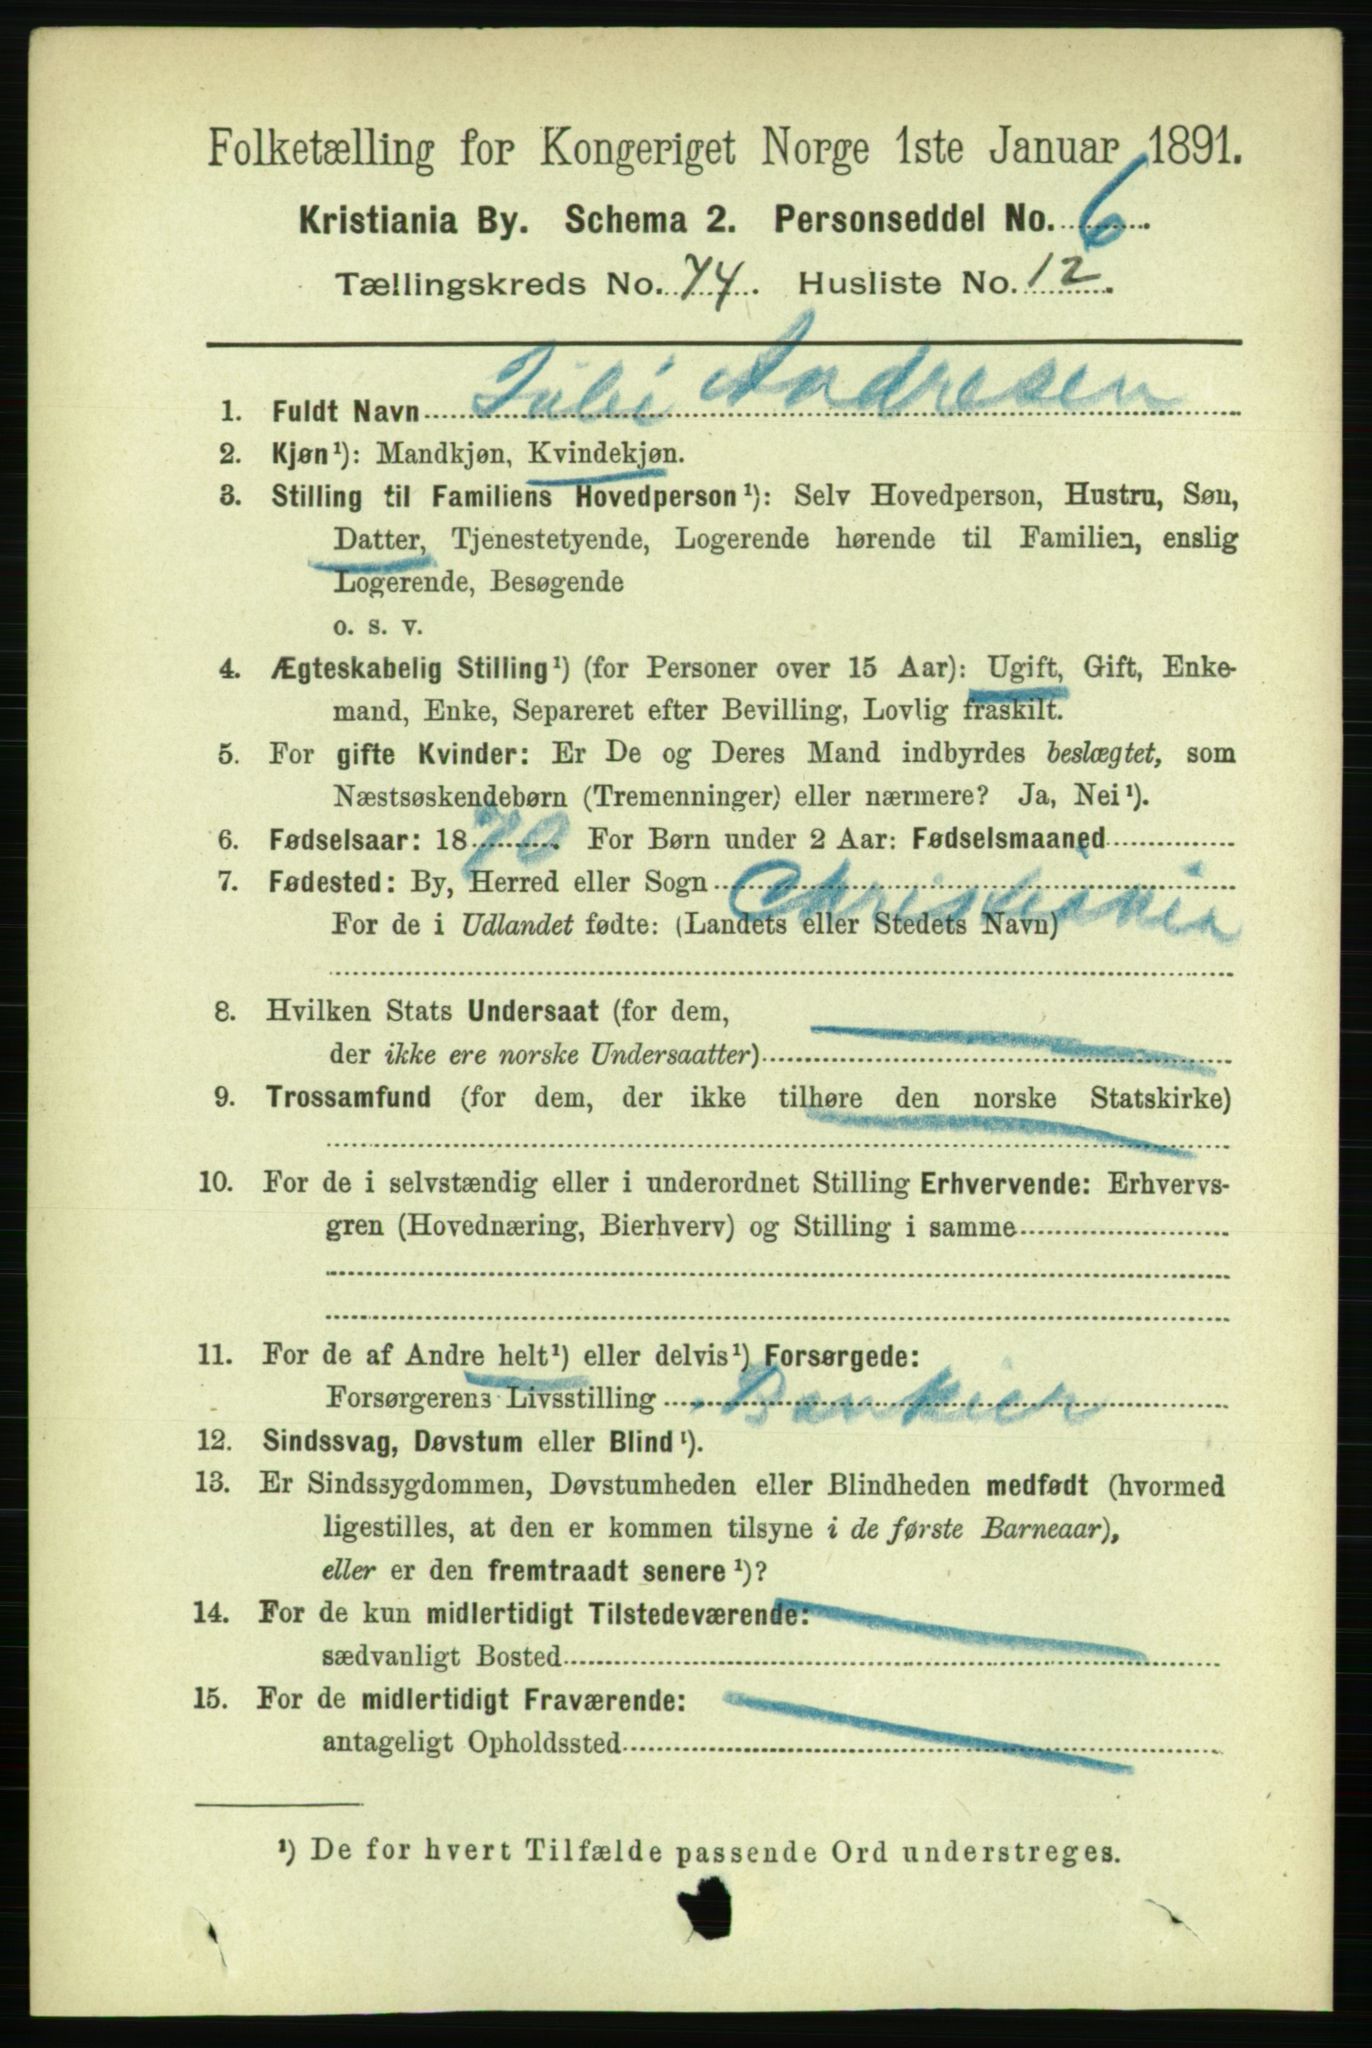 Folketælling for Kongeriget Norge 1ste Januar 1891.
Kristiania By. Schema 2. Personseddel No. 6.
Tællingskreds No. 74. Husliste No. 12.
1. Fuldt Navn Andresen
2. Kjøn¹): Mandkjøn, Kvindekjøn.
3. Stilling til Familiens Hovedperson¹): Selv Hovedperson, Hustru, Søn,
Datter, Tjenestetyende, Logerende hørende til Familien, enslig
Logerende, Besøgende
o. s. v.
4. Ægteskabelig Stilling¹) (for Personer over 15 Aar): Ugift, Gift, Enke-
mand, Enke, Separeret efter Bevilling, Lovlig fraskilt.
5. For gifte Kvinder: Er De og Deres Mand indbyrdes beslægtet, som
Næstsøskendebørn (Tremenninger) eller nærmere? Ja, Nei¹).
6. Fødselsaar: 1870. For Børn under 2 Aar: Fødselsmaaned
7. Fødested: By, Herred eller Sogn Christiania
For de i Udlandet fødte: (Landets eller Stedets Navn)
8. Hvilken Stats Undersaat (for dem,
der ikke ere norske Undersaatter)
9. Trossamfund (for dem, der ikke tilhøre den norske Statskirke)
10. For de i selvstændig eller i underordnet Stilling Erhvervende: Erhvervs-
gren (Hovednæring, Bierhverv) og Stilling i samme
11. For de af Andre helt¹) eller delvis¹) Forsørgede:
Forsørgerens Livsstilling Bankier
12. Sindssvag, Døvstum eller Blind¹).
13. Er Sindssygdommen, Døvstumheden eller Blindheden medfødt (hvormed
ligestilles, at den er kommen tilsyne i de første Barneaar),
eller er den fremtraadt senere¹)?
14. For de kun midlertidigt Tilstedeværende:
sædvanligt Bosted
15. For de midlertidigt Fraværende:
antageligt Opholdssted
¹) De for hvert Tilfælde passende Ord understreges.